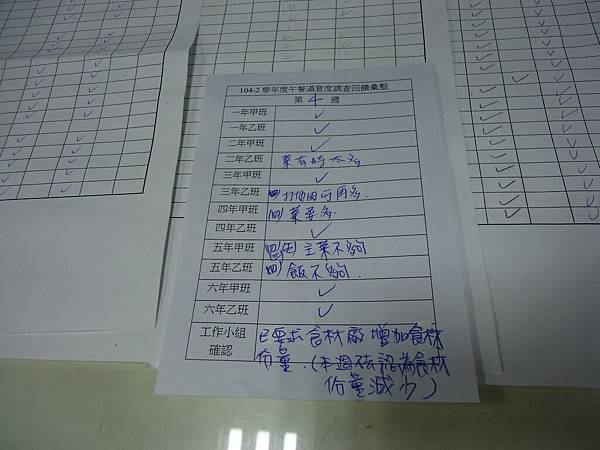 104-2 學年度午餐滿意度調查回饋彙整
第 4 週
一年甲班 ✓
一年乙班 ✓
二年甲班 ✓
二年乙班 菜有時太多
三年甲班 ✓
三年乙班 可用多.
四年甲班 (四) 菜要多.
四年乙班 ✓
五年甲班 主菜不夠
五年乙班 (四) 飯不夠.
六年甲班 ✓
六年乙班 ✓
工作小組
確認
已要求食材廠增加食材
份量.(本週 認為食材
份量減少)